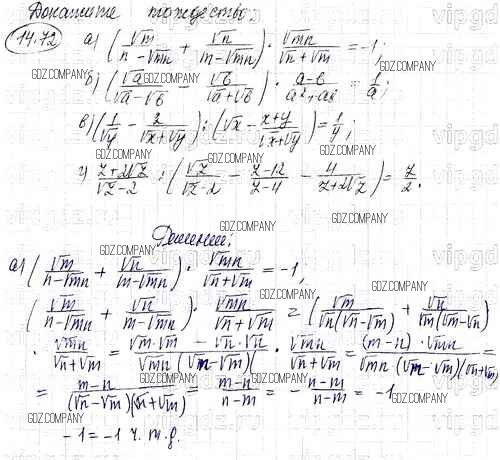 Докажите тождество:
14.72 а) (√m/(n-√mn) + √n/(m-√mn)) · √mn/(√n+√m) = -1;
б) (√a/(√a-√b) - √b/(√a+√b)) · (a-b)/(a²+ab) = 1/a;
в) (1/√y - 2/(√x+√y)) : (√x - (x+y)/(√x+√y)) = 1/y;
г) (z+2√z)/(√z-2) : (√z/(√z-2) - (z-12)/(z-4) - 4/(z+2√z)) = z/2.
Решение:
а) (√m/(n-√mn) + √n/(m-√mn)) · √mn/(√n+√m) = -1;
(√m/(n-√mn) + √n/(m-√mn)) · √mn/(√n+√m) = (√m/(√n(√n-√m)) + √n/(√m(√m-√n)))
· √mn/(√n+√m) = (√m·√m - √n·√n)/(√mn(√n-√m)) · √mn/(√n+√m) = (m-n)·√mn/(√mn·(√n-√m)(√n+√m))
= (m-n)/((√n-√m)(√n+√m)) = (m-n)/(n-m) = -(n-m)/(n-m) = -1
-1=-1 ч.т.д.
GDZ.COMPANY
vip.gdz